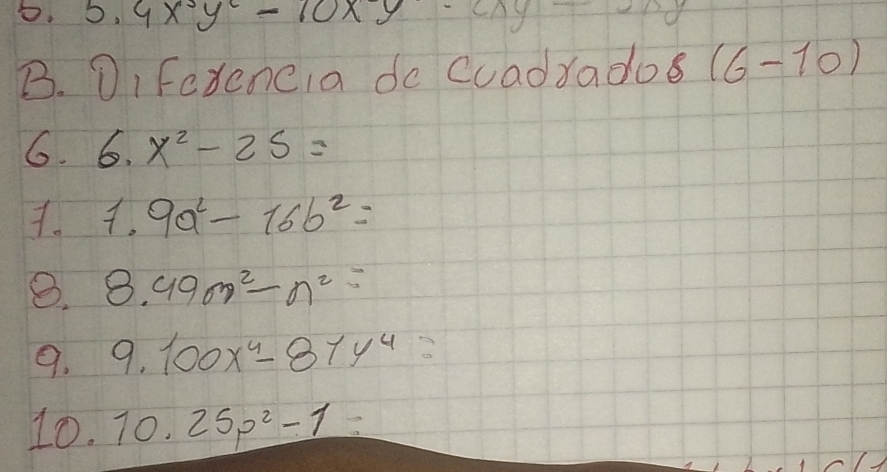 5. 5. 4x³y² - 10x²y
B. Diferencia de Cuadrados (6-10)
6. 6. x² - 25 =
7. 7. 9a² - 16b² =
8. 8. 49m² - n² =
9. 9. 100x⁴ - 81y⁴ =
10. 10. 25p² - 1 =